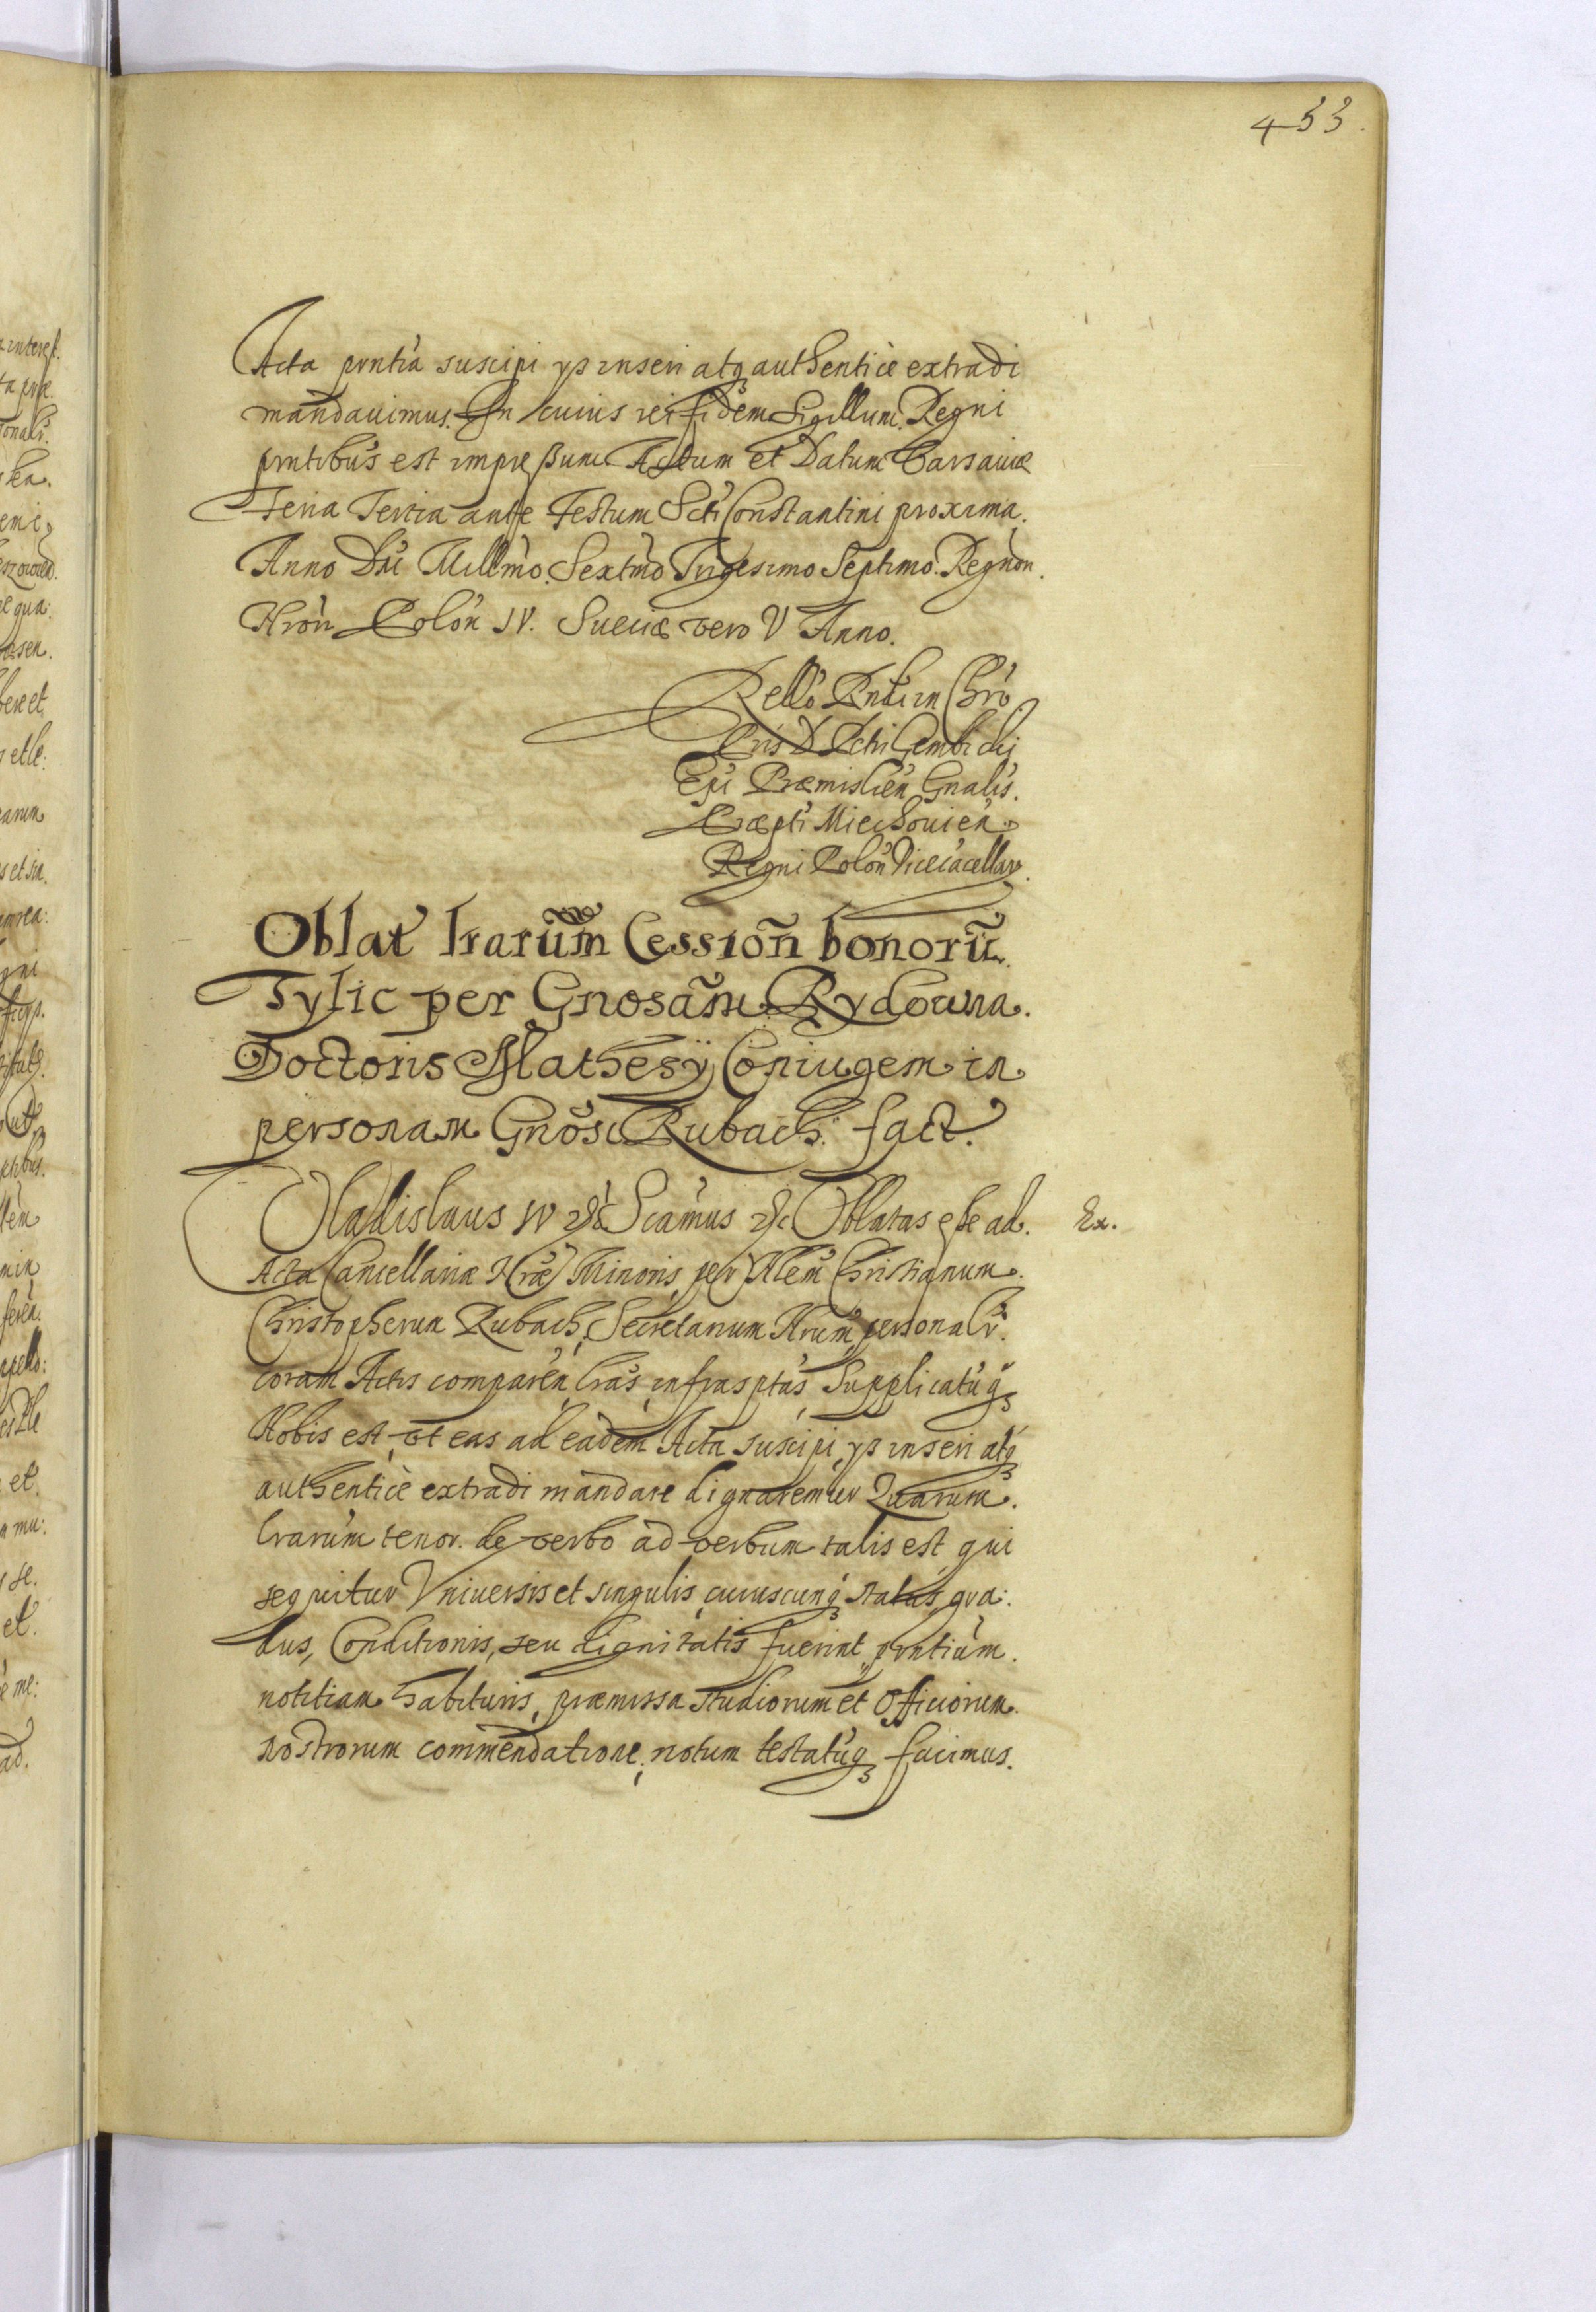 453.
Acta pntia suscipi ys inseri atq authenticè extradi
mandauimus. In cuius rei fidem Sigillum Regni
pntibus est impreßum. Actum et Datum Varsauiæ
Feria Tertia ante Festum Scti Constantini proxima.
Anno Dni Millmo. Sextmo Trigesimo Septimo. Regnon.
Nron Polon IV. Sueciæ vero V Anno.
Rello Rndi in Chro
Pris D Petri Gembicky
Epi Præmislien Gnalis.
Præpti Miechouien
Regni Polon Vicecacellar.
Oblat lrarum Cession bonoru
Tylic per Gnosam Rydowna.
Doctoris Mathesÿ Coniugem in
personam Gnosi Rubach. fact.
Vladislaus IV &c Scamus &c Oblatas eße ad. Ex.
Acta Cancellariæ Nræ Minoris, per Nlem Christianum
Christopherum Rubach, Secretarium Nrum, personalr.
coram Actis comparen, lras infrasptas, Supplicatuq
Nobis est, vt eas ad eadem Acta suscipi, ys inseri atq
authenticè extradi mandare dignaremur Quarum.
lrarum tenor de verbo ad verbum talis est, qui
sequitur Vniuersis et singulis, cuiuscunq status, gra:
dus, Conditionis, seu dignitatis fuerint, pntium.
notitiam habituris, præmissa studiorum et Officiorum.
nostrorum commendatione, notum testatuq facimus.